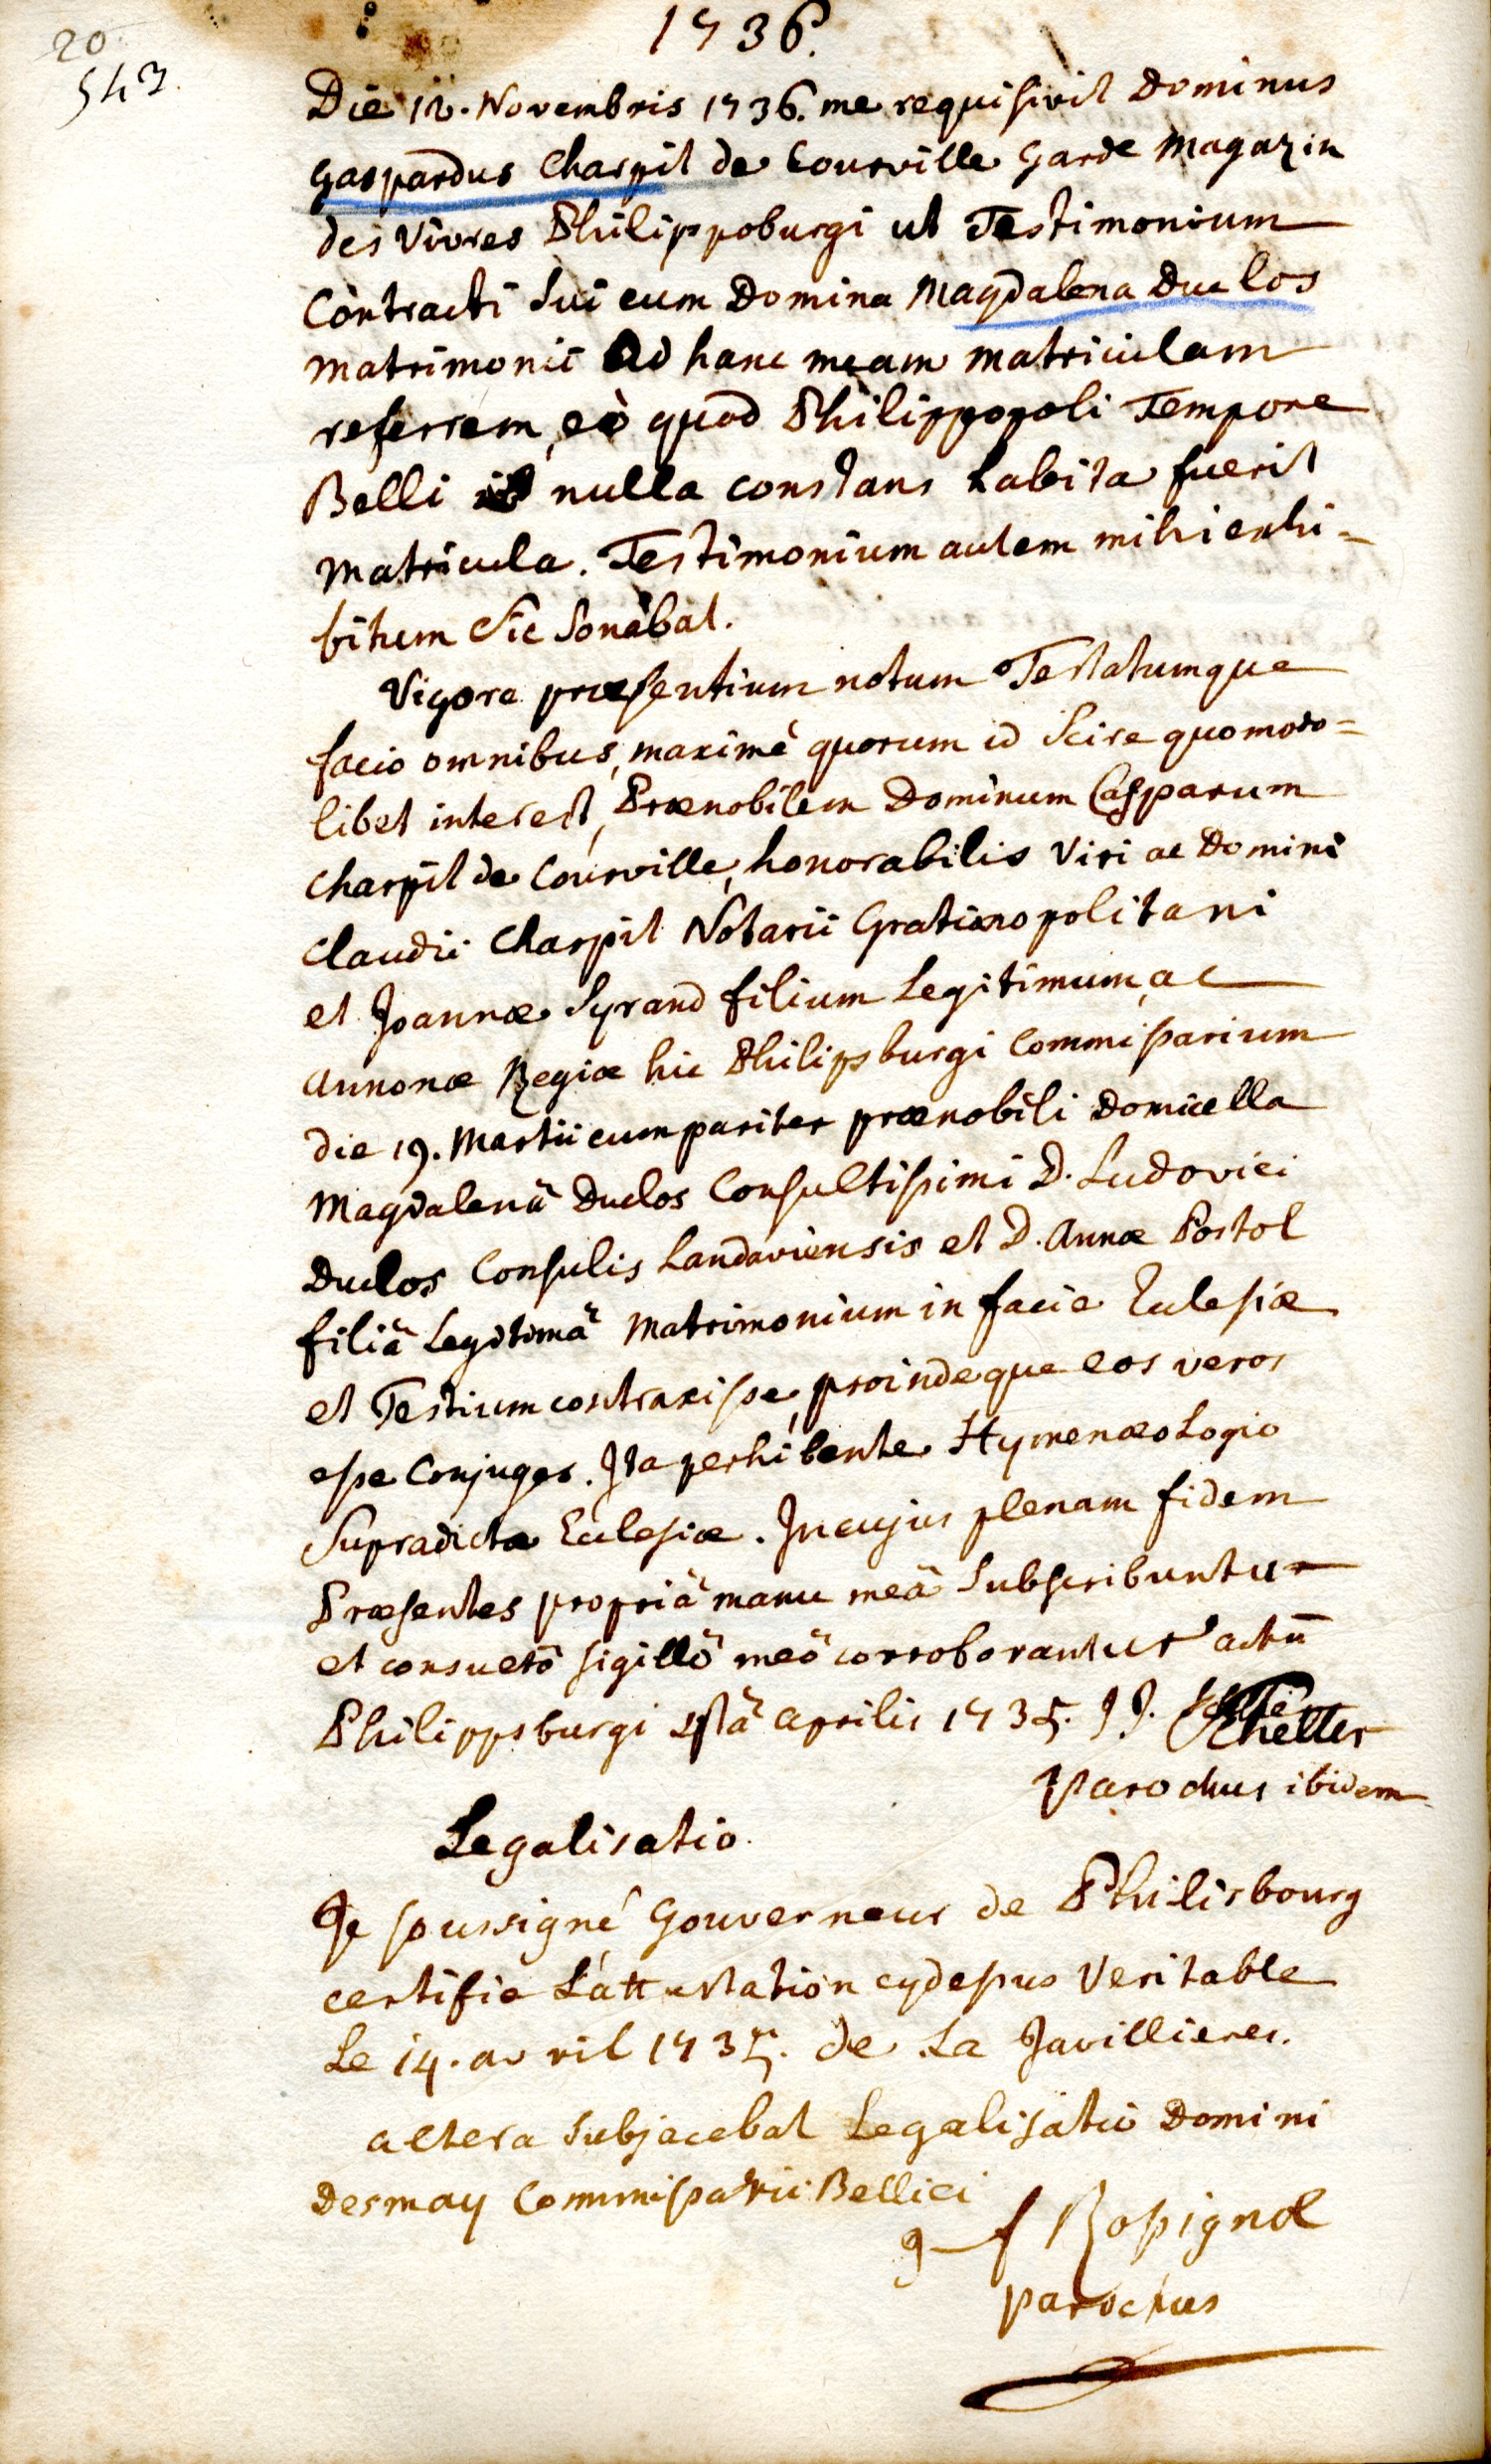 1736.
20
543.
Die 12. Novembris 1736. me requisivit Dominus
Gaspardus Charpil de Courville Garde Magazin
des Vivres Philippoburgi ut Testimonium
Contracti sui cum Domina Magdalena Duclos
matrimonii ad hanc meam matriculam
referrem, eò quod Philippopoli Tempore
Belli nulla constans habita fuerit
matricula. Testimonium autem mihi exhi=
bitum sic sonabat.
Vigore præsentium notum Testatumque
facio omnibus, maximè quorum id scire quomodo=
libet interest, Prænobilem Dominum Casparum
Charpil de Courville, honorabilis viri ac Domini
Claudii Charpil Notarii Gratianopolitani
et Joannæ Syrand filium Legitimum, ac
Annonæ Regiæ hic Philipsburgi Commissarium
die 19. Martii cum pariter prænobili Domicella
Magdalenâ Duclos Consultissimi D. Ludovici
Duclos Consulis Landaviensis et D. Annæ Postol
filiâ Legitimâ Matrimonium in facie Eclesiæ
et Testium contraxisse, proindeque eos veros
esse Conjuges. Ita perhibente Hymenæologio
Supradictæ Eclesiæ. In cujus plenam fidem
Præsentes propriâ manu meâ subscribuntur
et consuetô sigillô meô corroborantur actū
Philippsburgi Aprilis 1735. J J.
Parochus ibidem
Legalisatio.
Je soussigné Gouverneur de Philisbourg
certifie L'attestation cydessus Veritable
Le 14. avril 1735. de La Javillieres.
altera subjacebat Legalisatio Domini
Desmay Commissarii Bellici
f Rossignol
parochus